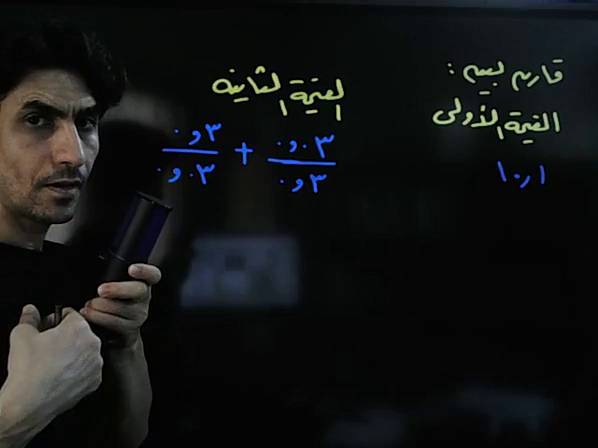 قارن بين :
القيمة الأولى
١٠٫١
القيمة الثانية
٠٫٣ / ٠٫٠٣ + ٠٫٠٣ / ٠٫٣